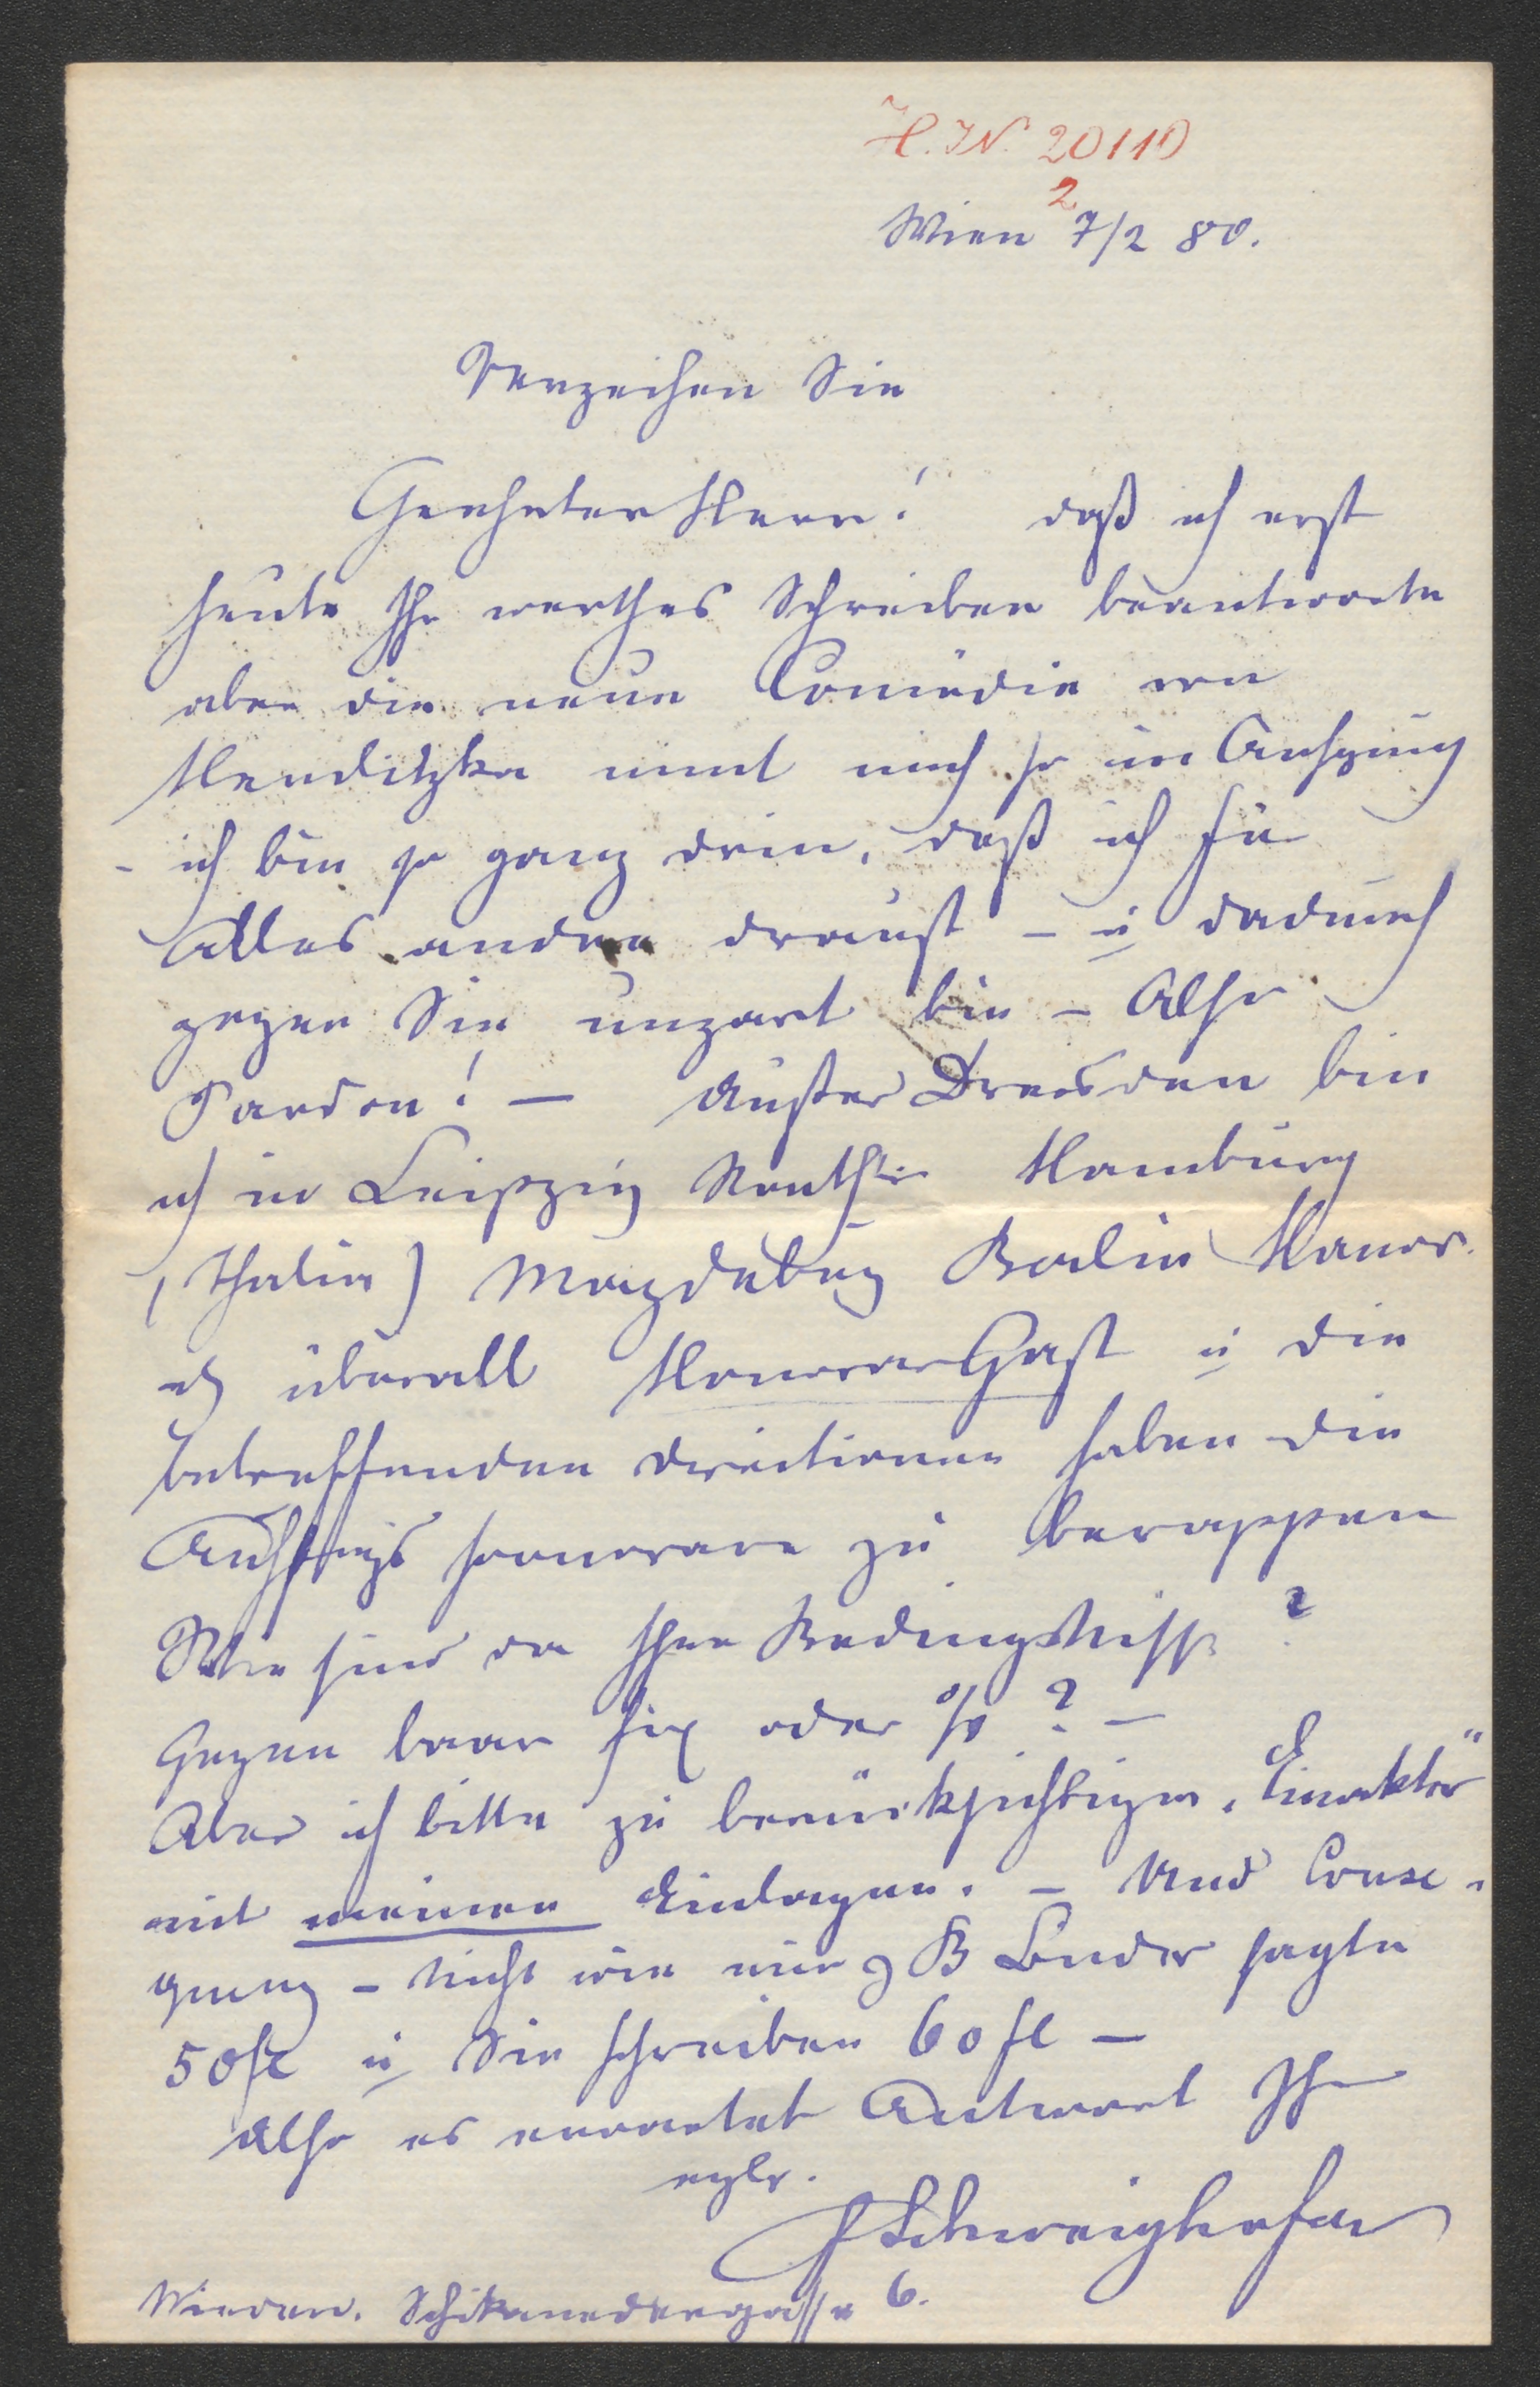 H.I.N. 20110
2
Wien 7/2 80.
Verzeihen Sie
Geehrter Herr! daß ich erst
heute Ihr werthes Schreiben beantworte
aber die neue Comödie von
nimt mich so in Anspruch
- ich bin so ganz drin, daß ich für
Alles andere draust - u dadurch
gegen Sie unzart bin - Also
Pardon! - Außer Dresden bin
ich in Leipzig Hamburg
(Thalia) Magdeburg Berlin Hanov.
ich überall HonorarGast u die
betreffenden Directionen haben die
honorare zu berappen
Wie sind da Ihre Bedingnisse?
Gegen baar fix oder % ? -
Aber ich bitte zu berücksichtigen, Einakter"
mit meinen Einlagen. - Und Conse-
quenz - nicht wie mir z B sagte
50 fl u Sie schreiben 60 fl -
Also es erwartet Antwort Ihr
ergbr.
FSchweighofer
Wieden. Schikanedergasse 6.